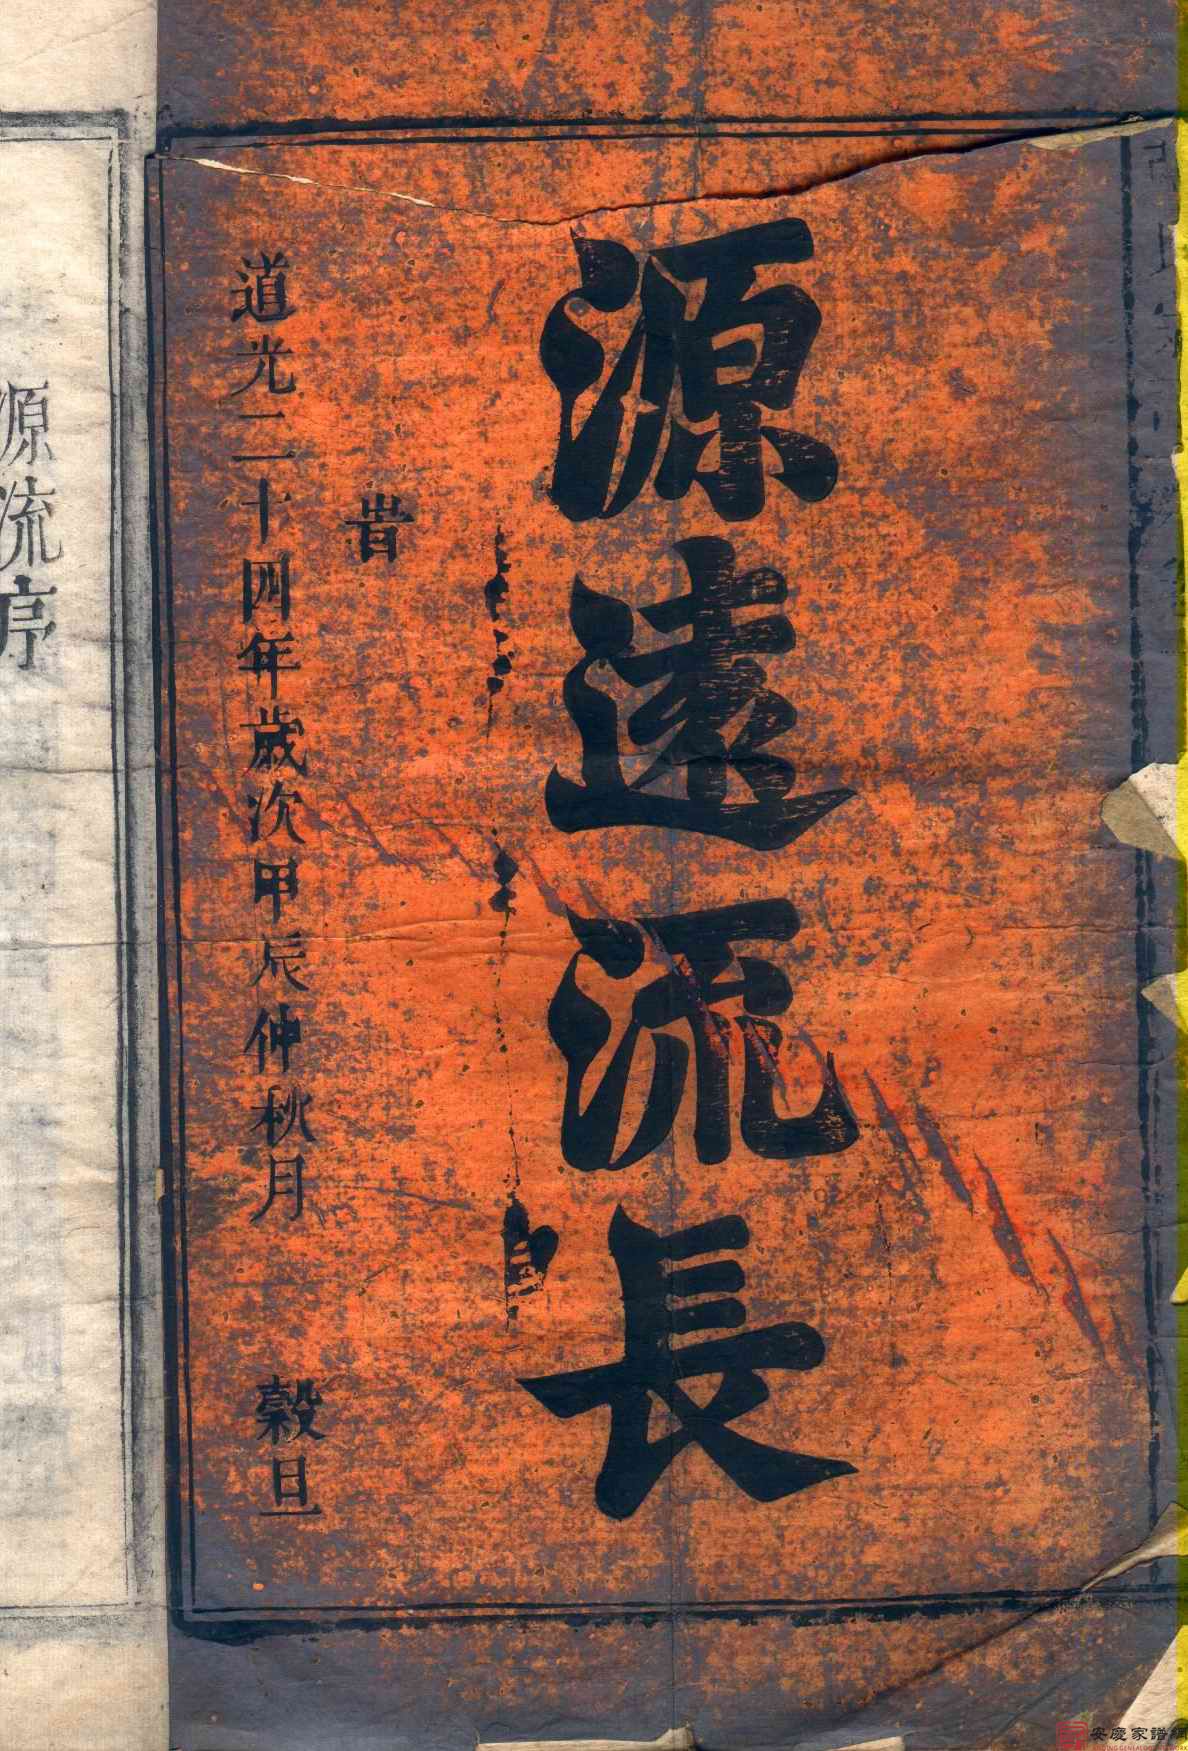 源遠流長
旹
道光二十四年歲次甲辰仲秋月 穀旦
源流序
安慶家譜網